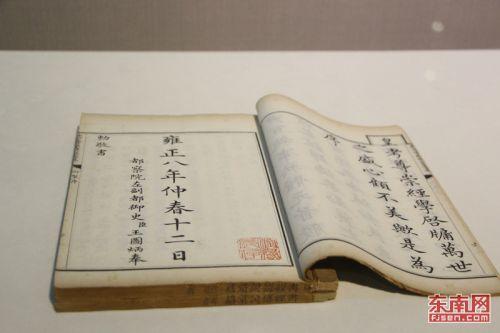 皇考尊崇經學啓牖萬世
之盛心顧不美歟是為
序
雍正八年仲春十二日
都察院左副都御史臣王圖炳奉
勅敬書
东南网
FJSEN.COM